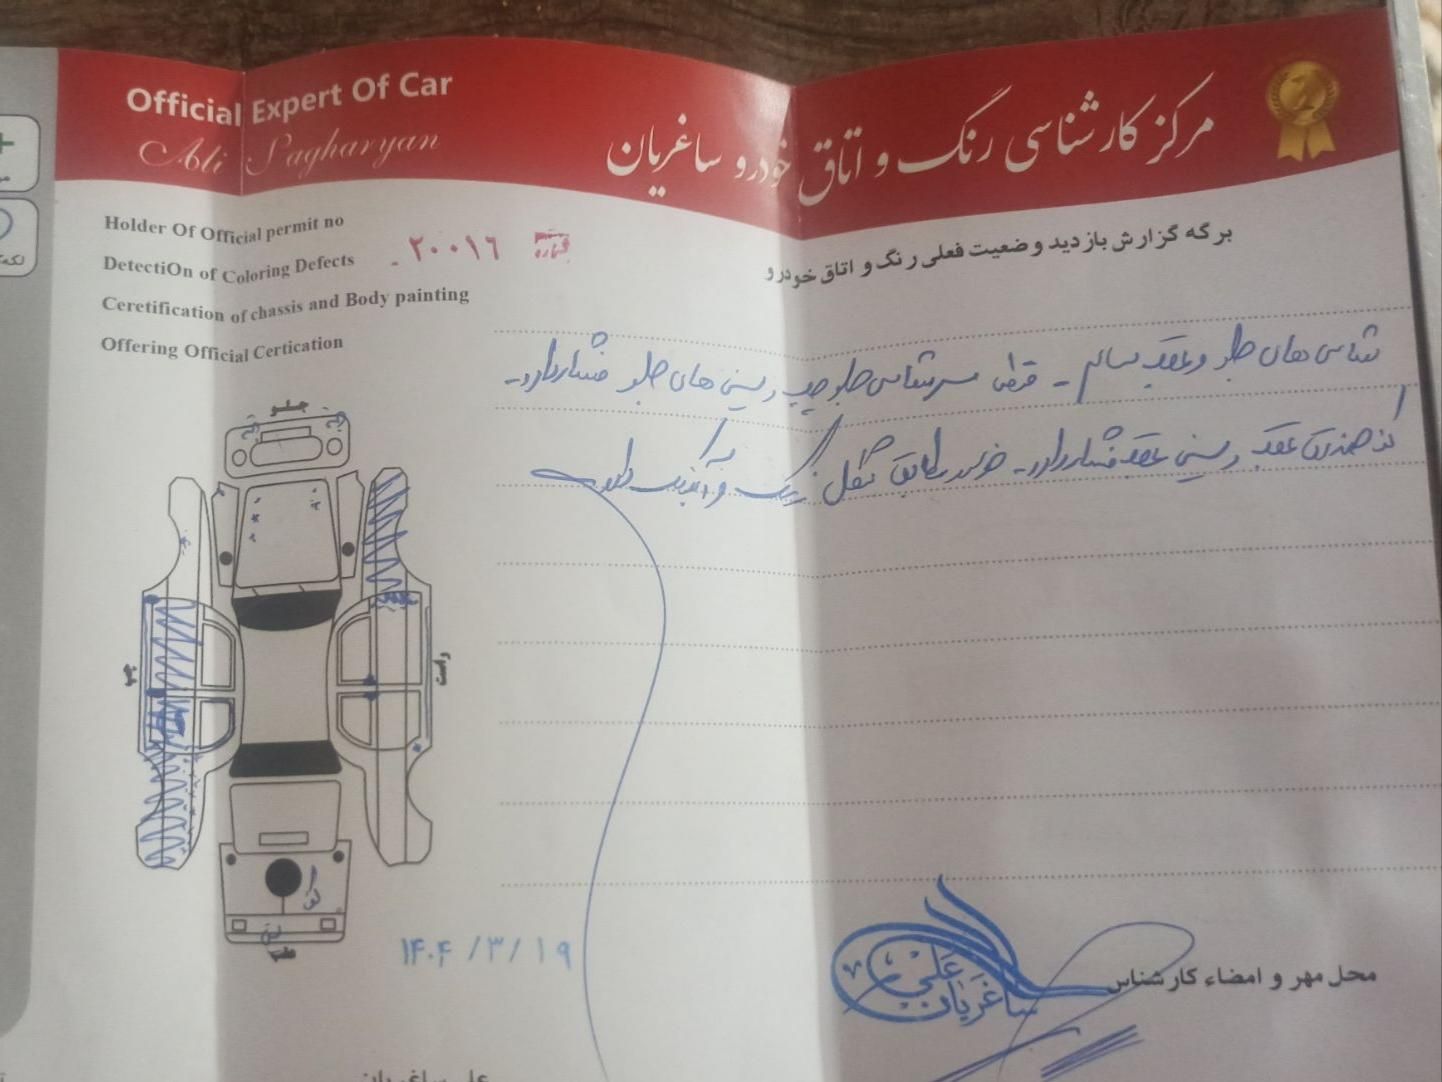 Official Expert Of Car
Ali Sagharyan
مرکز کارشناسی رنگ و اتاق خودرو ساغریان
Holder Of Official permit no
DetectiOn of Coloring Defects
Ceretification of chassis and Body painting
Offering Official Certication
شماره
۲۰۰۱۶
برگه گزارش بازدید وضعیت فعلی رنگ و اتاق خودرو
شاسی های جلو و عقب سالم - سرشاسی جلو چپ و سینی های جلو فشار دارد -
کف صندوق عقب و سینی عقب فشار دارد - خودرو مطابق شکل رنگ و
جلو
چپ
راست
عقب
۱۴۰۴/۳/۱۹
علی ساغریان
محل مهر و امضاء کارشناس
علی ساغریان